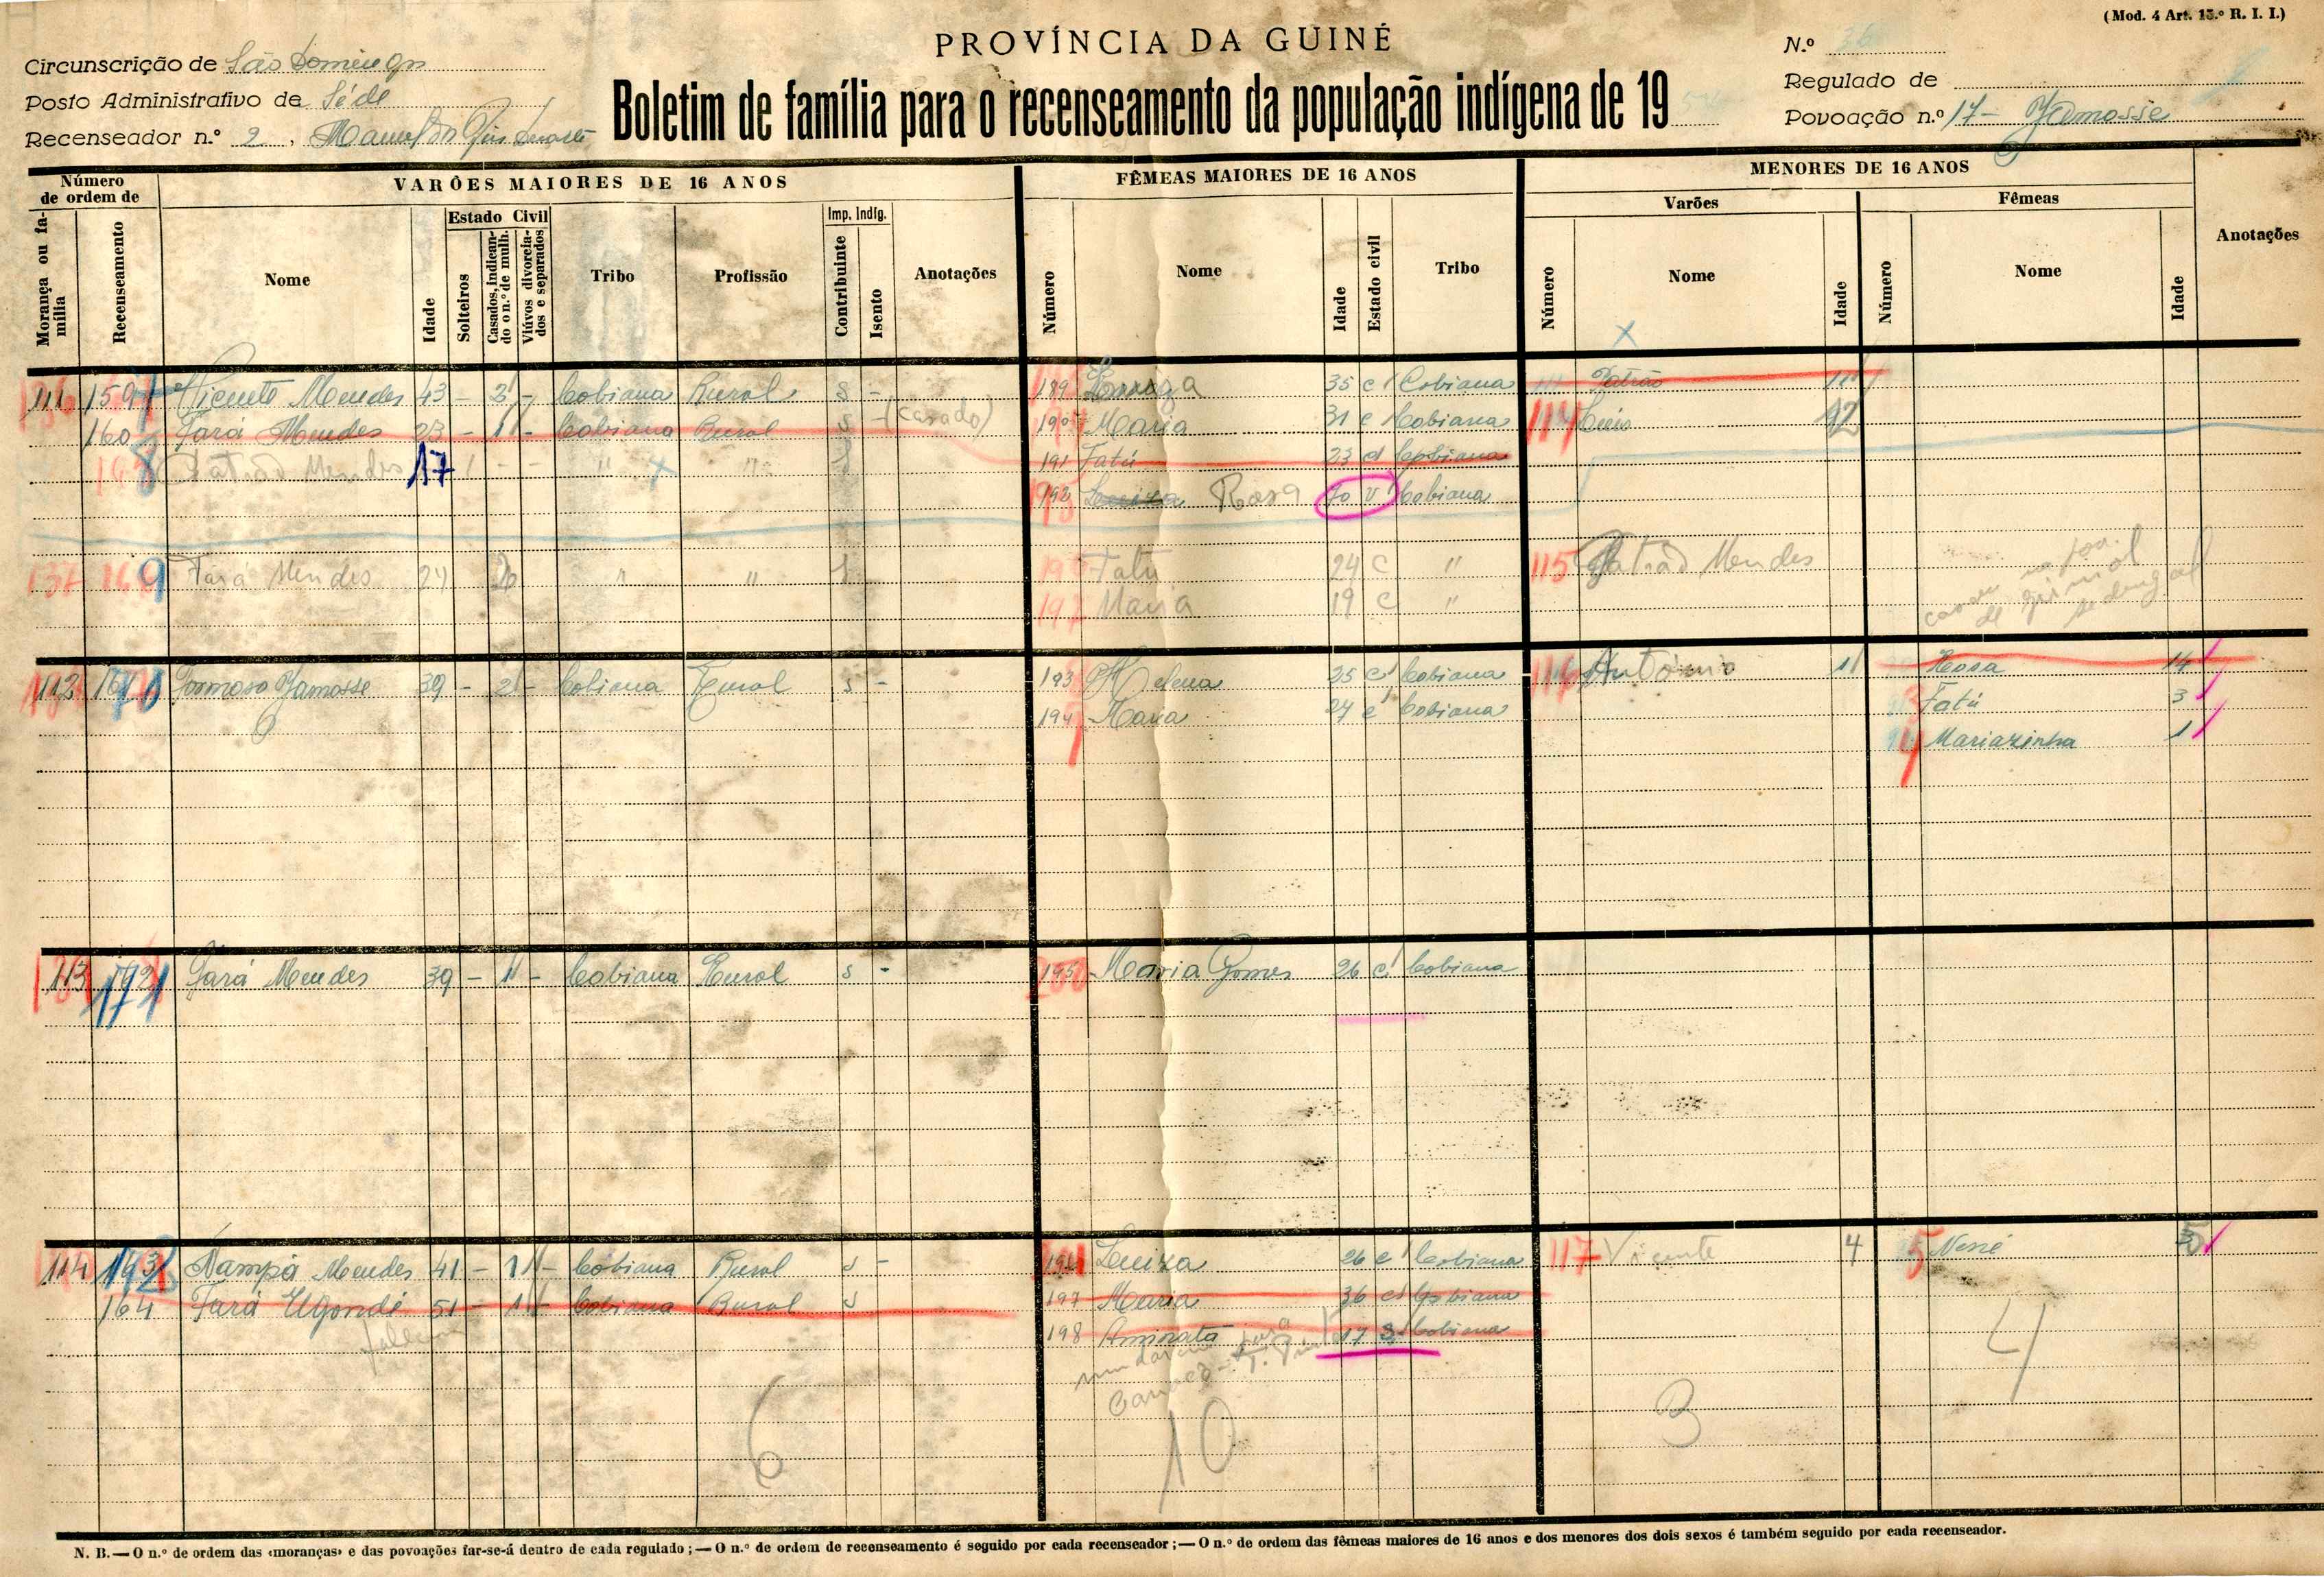 (Mod. 4 Art. 15.º R. I. I.)
PROVÍNCIA DA GUINÉ
Boletim de família para o recenseamento da população indígena de 19
Circunscrição de São Domingos
Posto Administrativo de Séde
Recenseador n.º 2, Manuel
N.º
Regulado de
Povoação n.º 17 - Jamosse
Número de ordem de
VARÕES MAIORES DE 16 ANOS
FÊMEAS MAIORES DE 16 ANOS
MENORES DE 16 ANOS
Morança ou família
Recenseamento
Nome
Idade
Estado Civil
Solteiros
Casados, indicando o n.º de mulh.
Viúvos divorciados e separados
Tribo
Profissão
Imp. Indíg.
Contribuinte
Isento
Anotações
Número
Nome
Idade
Estado civil
Tribo
Varões
Número
Nome
Idade
Fêmeas
Número
Nome
Idade
Anotações
111 159 Vicente Mendes 43 - 2 - Cobiana Rural s - 189 35 c Cobiana Patrão
160 Tará Mendes 23 - 1 - Cobiana Rural s - (casado) 190 Maria 31 c Cobiana 114 Luis 12
Patrão Mendes 17 1 - - " " 191 Fatú 23 c Cobiana
192 Rosa 70 v Cobiana
137 169 Tará Mendes 24 " " Fatú 24 c " 115 Patrão Mendes
197 Maria 19 c "
112 Formoso Jamosse 39 - 2 - Cobiana Rural s - 193 Helena 25 c Cobiana 116 António 11 Rosa 14
194 Maria 27 c Cobiana Fatú 3
Mariazinha 1
113 171 Jará Mendes 39 - 1 - Cobiana Rural s - 195 Maria Gomes 26 c Cobiana
114 Nampá Mendes 41 - 1 - Cobiana Rural s - Luiza 26 c Cobiana 117 Vicente 4 5 Nené
164 Tará Ugondé 51 - 1 - Cobiana Rural s 197 Maria 36 c Cobiana
198 Aminata 17 s Cobiana
6
10
3
4
N. B.—O n.º de ordem das «moranças» e das povoações far-se-á dentro de cada regulado;—O n.º de ordem de recenseamento é seguido por cada recenseador;—O n.º de ordem das fêmeas maiores de 16 anos e dos menores dos dois sexos é também seguido por cada recenseador.